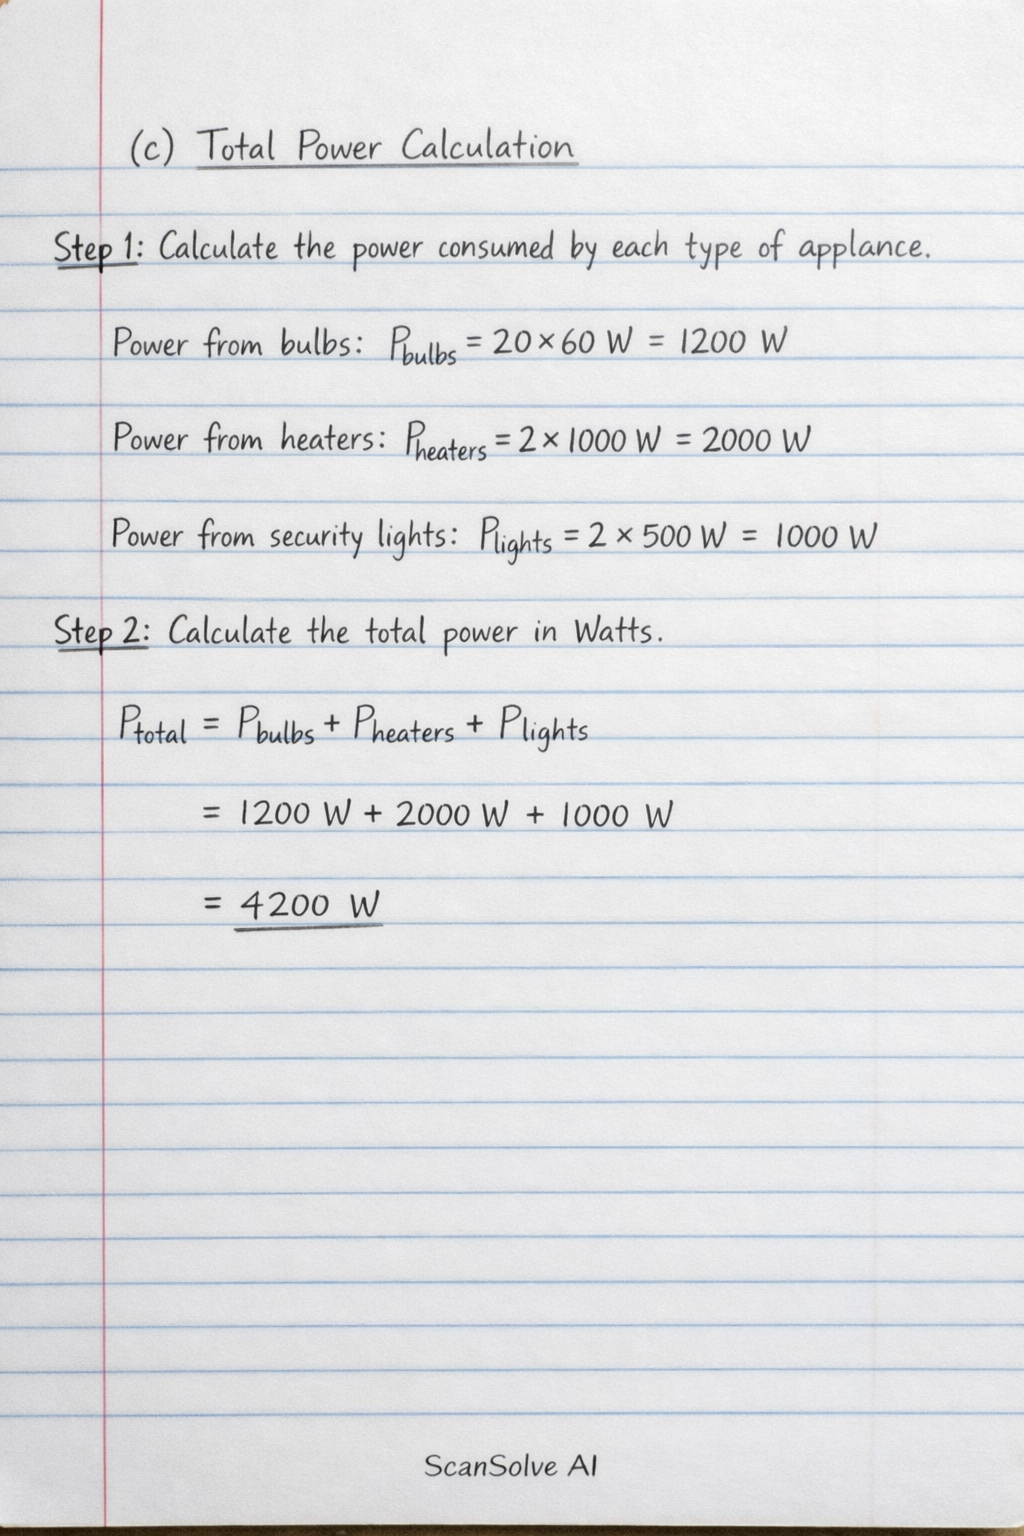 (c) Total Power Calculation
Step 1: Calculate the power consumed by each type of applance.
Power from bulbs: Pbulbs = 20 × 60 W = 1200 W
Power from heaters: Pheaters = 2 × 1000 W = 2000 W
Power from security lights: Plights = 2 × 500 W = 1000 W
Step 2: Calculate the total power in Watts.
Ptotal = Pbulbs + Pheaters + Plights
= 1200 W + 2000 W + 1000 W
= 4200 W
ScanSolve AI